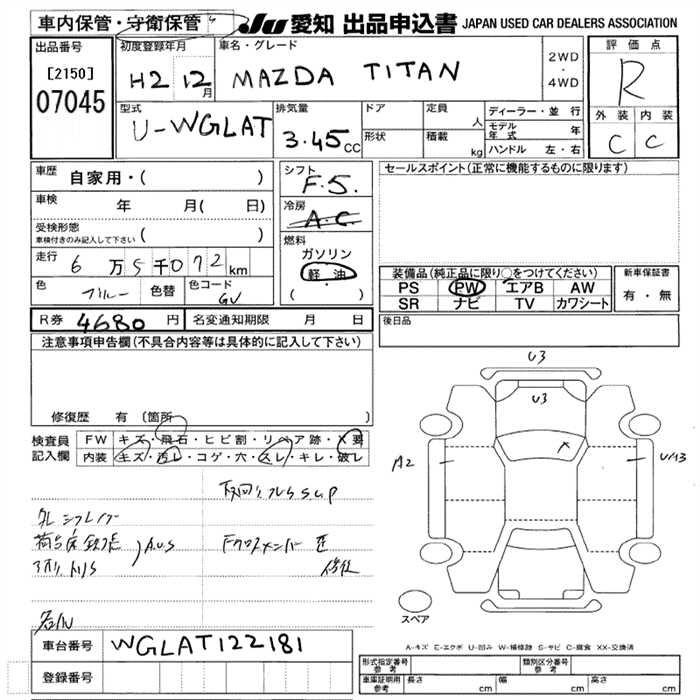 車内保管・守衛保管
JU 愛知 出品申込書 JAPAN USED CAR DEALERS ASSOCIATION
出品番号
[2150]
07045
初度登録年月
H2 12月
車名・グレード
MAZDA TITAN
2WD
・
4WD
評価点
R
型式
U-WGLAT
排気量
3.45CC
ドア
形状
定員
人
積載
kg
ディーラー・並行
モデル年式 年
ハンドル 左・右
外装 内装
C C
車歴
自家用・( )
車検
年 月( 日)
受検形態
車検付きのみ記入して下さい ( )
走行
6万5千072km
色
ブルー
色替
色コード
GV
シフト
F.5.
冷房
A.C.
燃料
ガソリン
軽油
( ・ )
セールスポイント(正常に機能するものに限ります)
装備品(純正品に限り○をつけてください)
PS PW エアB AW
SR ナビ TV カワシート
新車保証書
有・無
R券 4680円 名変通知期限 月 日
後日品
注意事項申告欄(不具合内容等は具体的に記入して下さい)
修復歴 有(箇所 )
検査員記入欄
FW キズ・飛石・ヒビ割・リペア跡・X要
内装 キズ・汚レ・コゲ・穴・スレ・キレ・破レ
下回りフレS.U.P
荷台床鉄板
A.U.S
Fクロスメンバー歪
修復
U3
U3
A2
X
U/13
スペア
A-キズ E-エクボ U-凹み W-補修跡 S-サビ C-腐食 XX-交換済
車台番号 WGLAT122181
登録番号
形式指定番号 参考
類別区分番号 参考
車庫証明用 参考
長さ cm 幅 cm 高さ cm